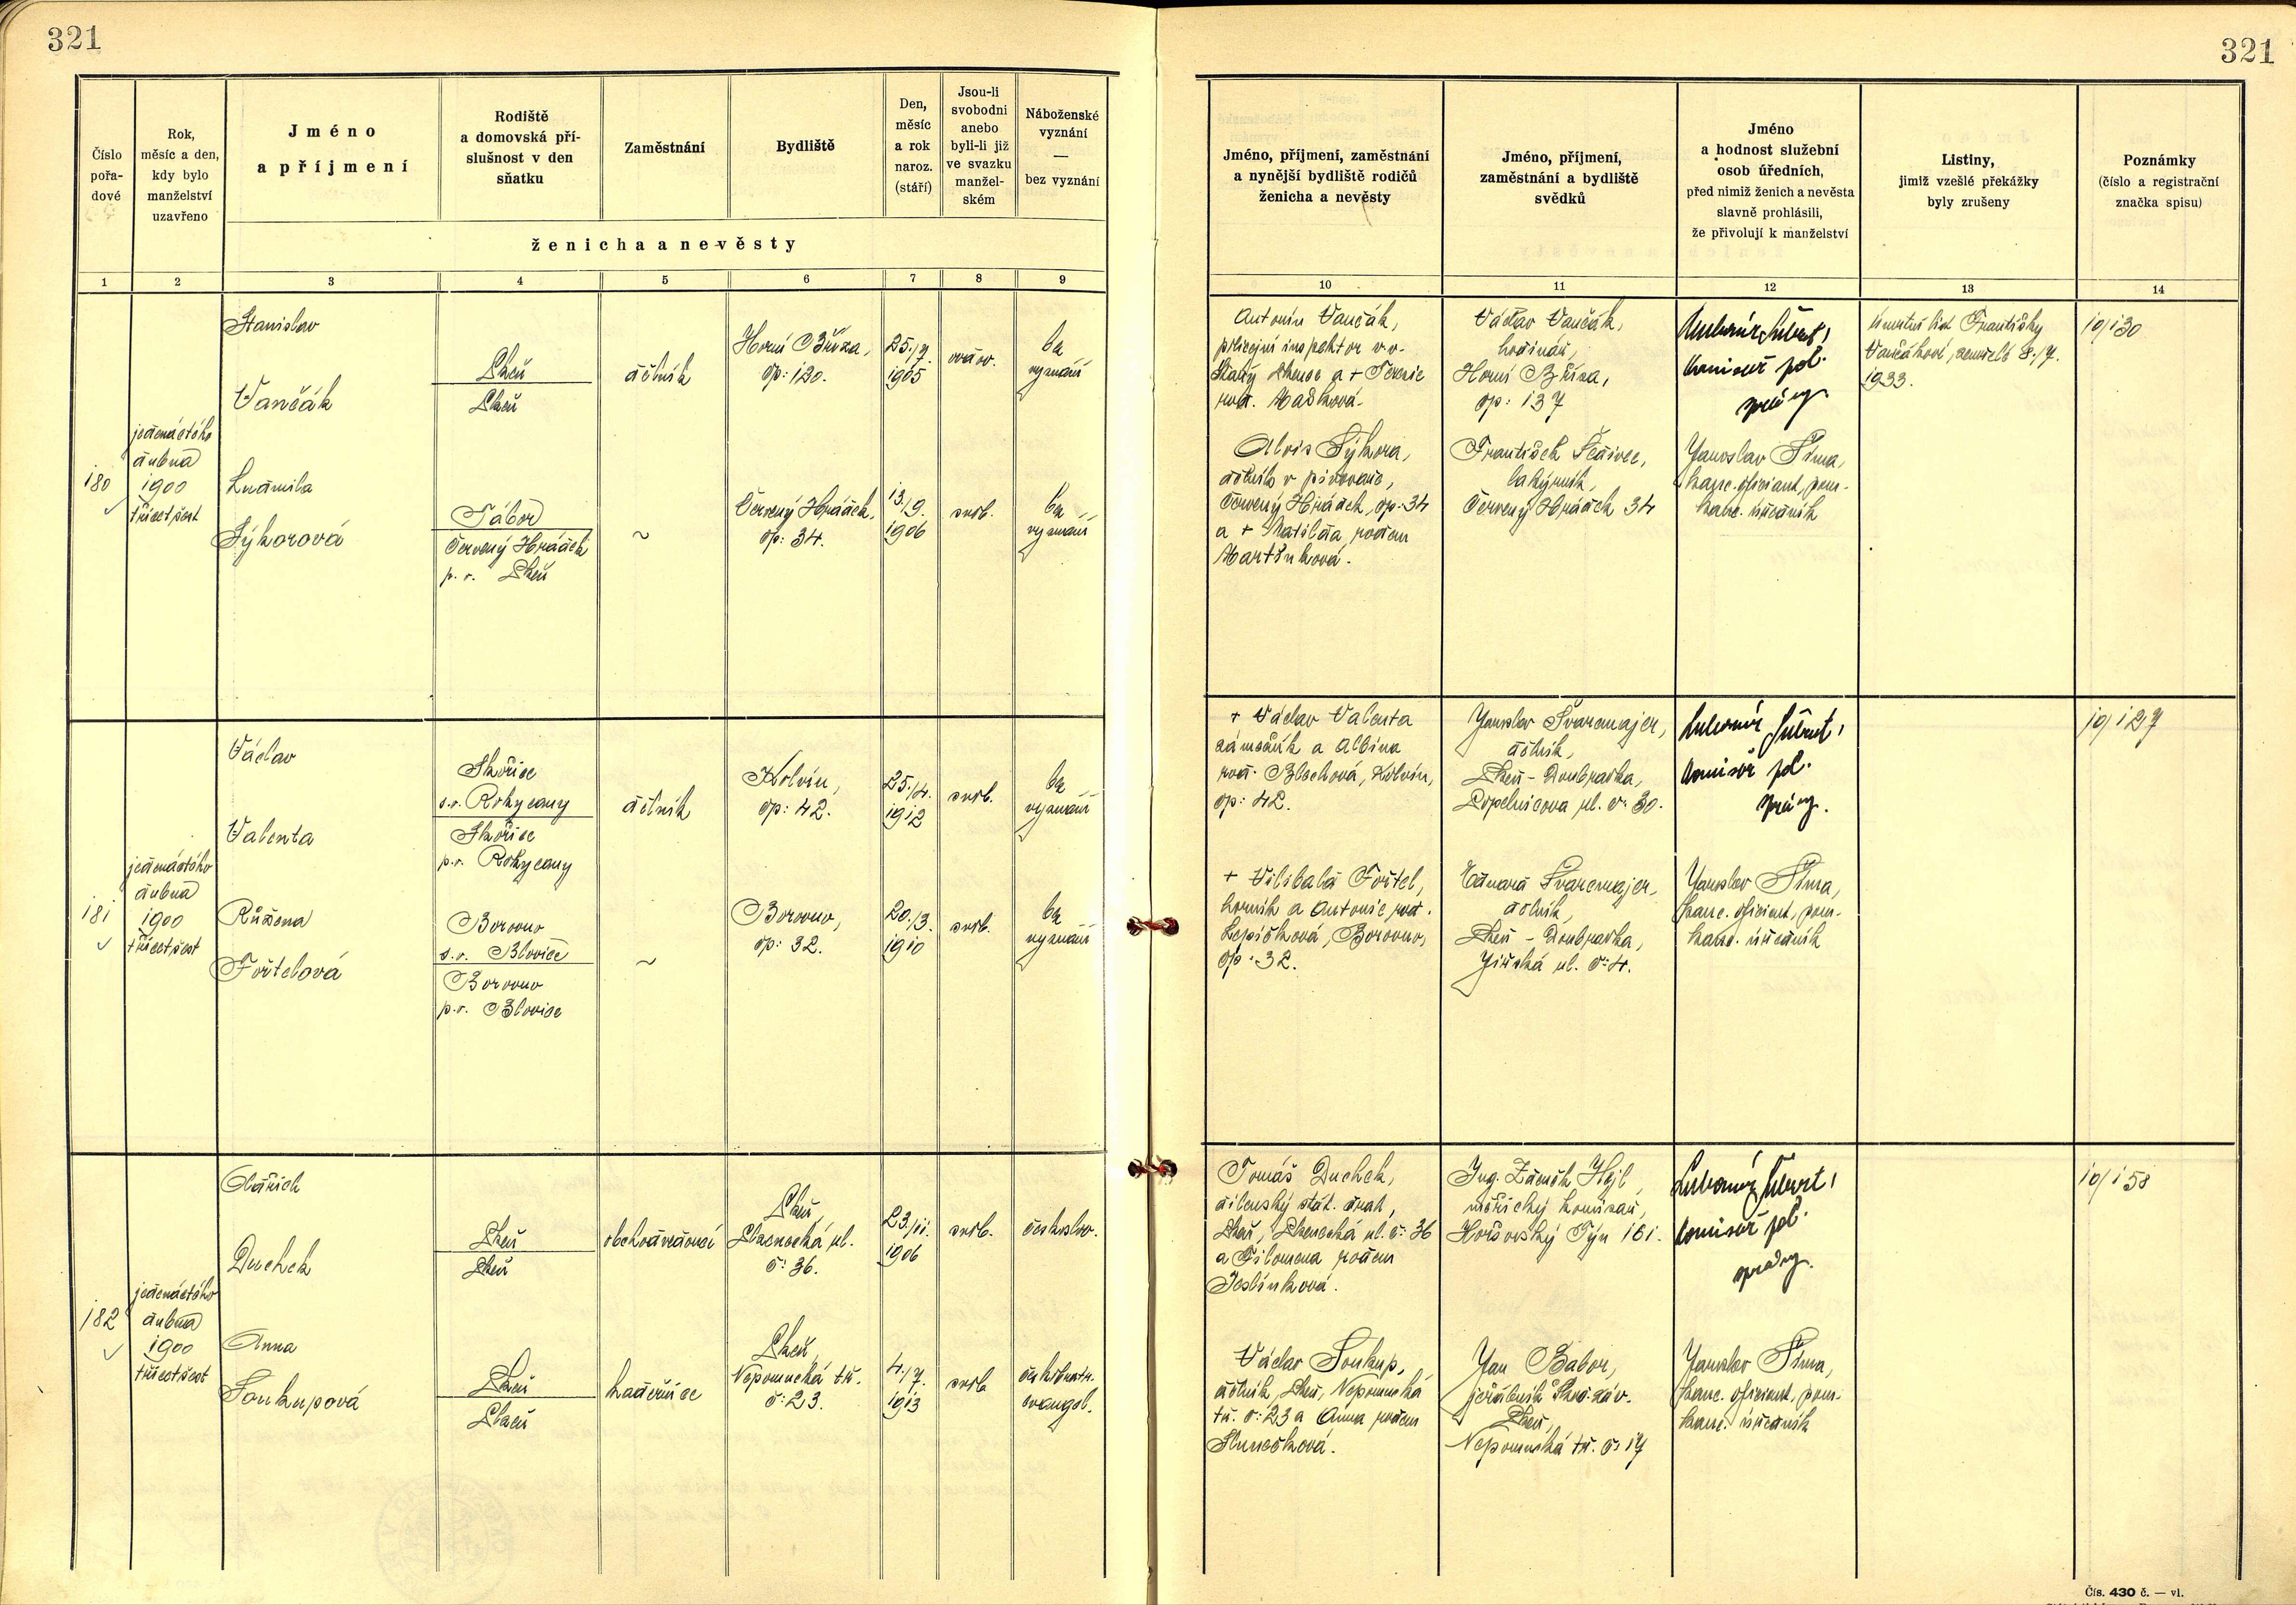 321
321
Číslo
pořa-
dové
Rok,
měsíc a den,
kdy bylo
manželství
uzavřeno
Jméno
a příjmení
Rodiště
a domovská pří-
slušnost v den
sňatku
Zaměstnání
Bydliště
Den,
měsíc
a rok
naroz.
(stáří)
Jsou-li
svobodni
anebo
byli-li již
ve svazku
manžel-
ském
Náboženské
vyznání
—
bez vyznání
ženicha a nevěsty
Jméno, příjmení, zaměstnání
a nynější bydliště rodičů
ženicha a nevěsty
Jméno, příjmení,
zaměstnání a bydliště
svědků
Jméno
a hodnost služební
osob úředních,
před nimiž ženich a nevěsta
slavně prohlásili,
že přivolují k manželství
Listiny,
jimiž vzešlé překážky
byly zrušeny
Poznámky
(číslo a registrační
značka spisu)
1
2
3
4
5
6
7
8
9
10
11
12
13
14
180
jedenáctého
dubna
1900
třicetšest
Stanislav
Vančák
Plzeň
Plzeň
dělník
Horní Bříza,
čp: 120.
25./7.
1905
vdov.
bez
vyznání
Ludmila
Sýkorová
Tábor
Červený Hrádek
p. o. Plzeň
~
Červený Hrádek,
čp: 34.
13./9.
1906
svob.
bez
vyznání
Antonín Vančák,
policejní inspektor v. v.
Starý Plzenec a + Terezie
rod. Mašková.
Alois Sýkora,
dělník v pivovaře,
Červený Hrádek, čp. 34
a + Matilda, rodem
Martínková.
Václav Vančák,
hodinář,
Horní Bříza,
čp: 137
František Ščasvec,
Červený Hrádek 34
Lubomír Šubert,
komisař pol.
správy.
Jaroslav Šíma,
kanc. oficiant, pom.
kanc. úředník
Úmrtní list Františky
Vančákové, zemřelé 8./7.
1933.
10/130
181
jedenáctého
dubna
1900
třicetšest
Václav
Valenta
Skořice
s.o. Rokycany
Skořice
p.o. Rokycany
dělník
Kolvín,
čp: 42.
25./4.
1912
svob.
bez
vyznání
Růžena
Fořtelová
Borovno
s.o. Blovice
Borovno
p.o. Blovice
~
Borovno,
čp: 32.
20./3.
1910
svob.
bez
vyznání
+ Václav Valenta
zámečník a Albína
rod. Blechová, Kolvín,
čp: 42.
+ Vilibald Fořtel,
horník a Antonie rod.
Lepíčková, Borovno,
čp: 32.
Jaroslav Švarcmajer,
dělník,
Plzeň - Doubravka,
ul. č: 30.
Eduard Švarcmajer,
dělník,
Plzeň - Doubravka,
Jižská ul. č: 4.
Lubomír Šubert,
komisař pol.
správy.
Jaroslav Šíma,
kanc. oficiant, pom.
kanc. úředník
10/127
182
jedenáctého
dubna
1900
třicetšest
Oldřich
Duchek
Plzeň
Plzeň
obchodvedoucí
Plzeň,
Plzenecká ul.
č: 36.
23./11.
1906
svob.
českoslov.
Anna
Soukupová
Plzeň
Plzeň
kadeřnice
Plzeň,
Nepomucká tř.
č: 23.
4./7.
1913
svob.
českobratr.
evangel.
Tomáš Duchek,
dílenský stát. drah,
Plzeň, Plzenecká ul. č: 36
a Filomena rodem
Jeslínková.
Václav Soukup,
dělník, Plzeň, Nepomucká
tř. č: 23 a Anna rodem
Slunečková.
Ing. Zdeněk Hejl,
měřický komisař,
Horšovský Týn 161.
Jan Babor,
jeřábník Škod. záv.
Plzeň,
Nepomucká tř. č. 17
Lubomír Šubert,
komisař pol.
správy.
Jaroslav Šíma,
kanc. oficiant, pom.
kanc. úředník
10/158
Čís. 430 č. — vl.